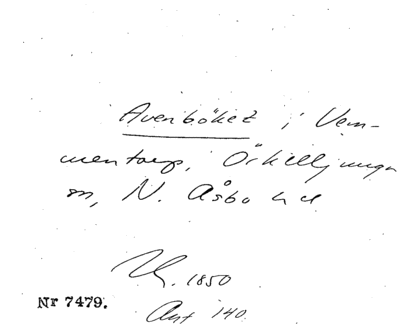 Avenböket i Vem-
mentorp, Örkelljunga
sn, N. Åsbo hd
1850
Nr 7479.
Ant 140.